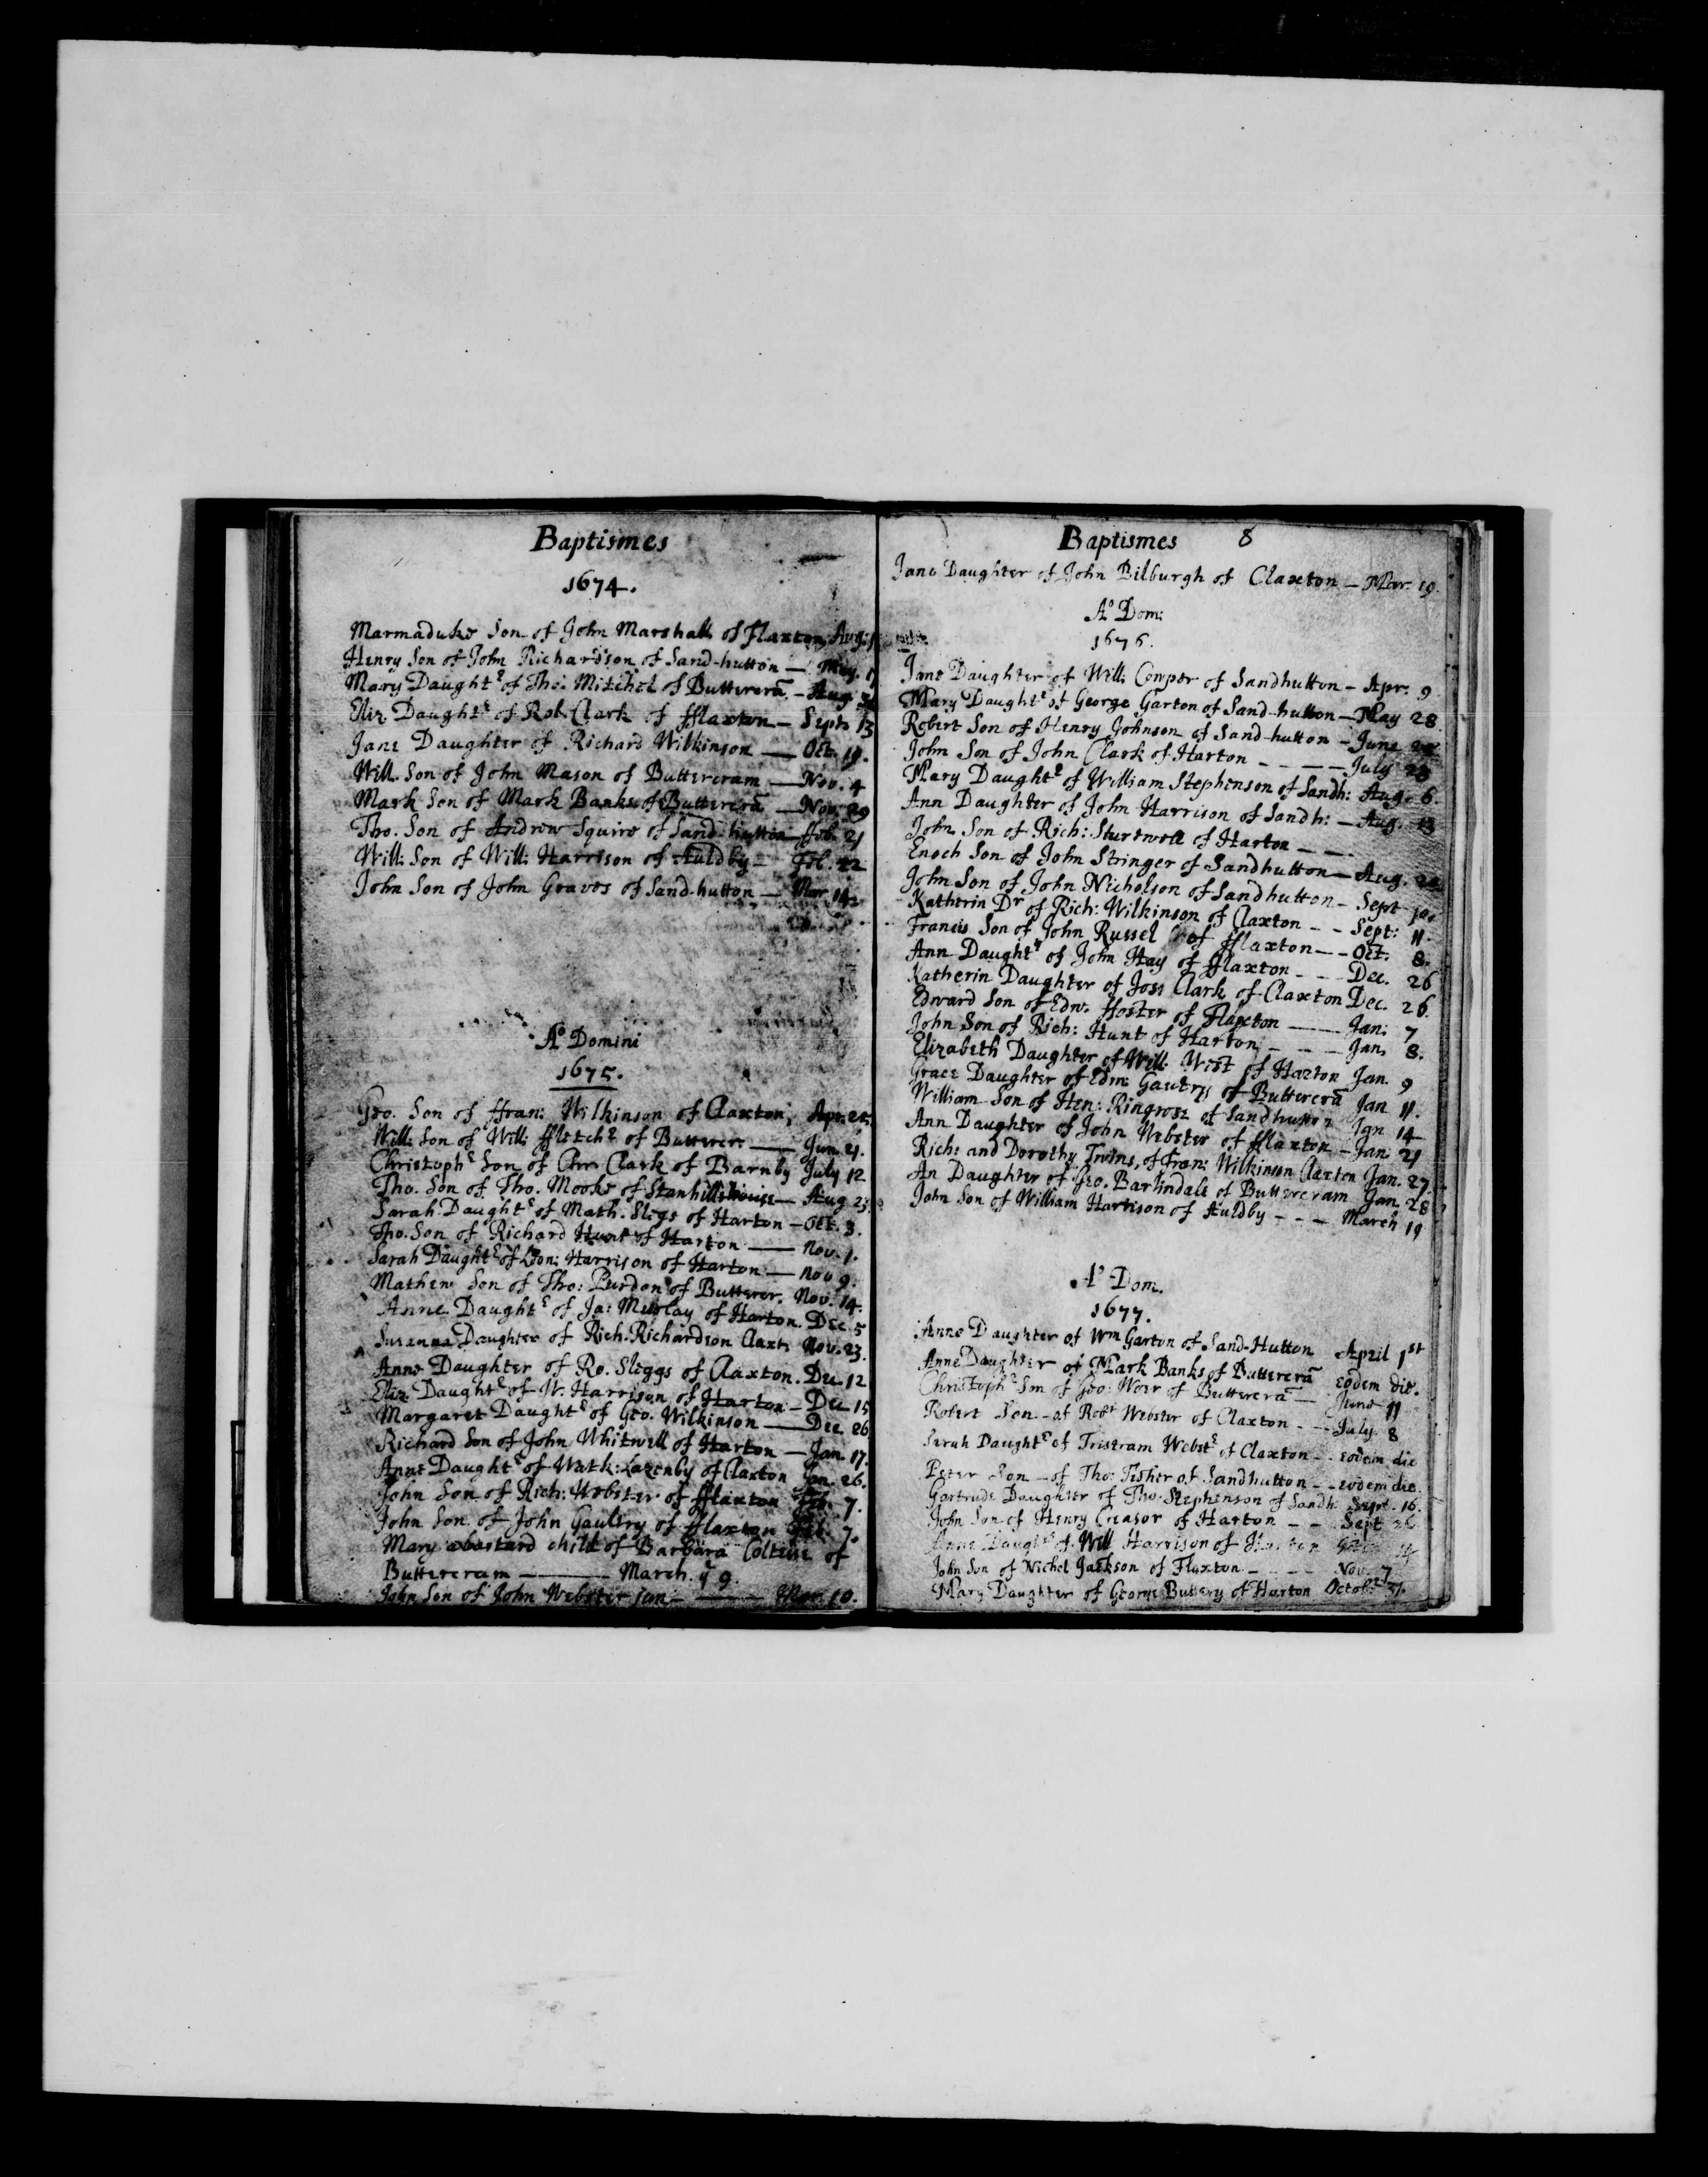 Baptismes
1674.
Marmaduke Son of John Marshall of Flaxton Aug:
Henry Son of John Richardson of Sand-hutton — May.
Mary Daughtr of Tho: Mitchel of Buttercrā — Aug. 3
Eliz Daughtr of Rob. Clark of fflaxton — Sept: 13
Jane Daughter of Richard Wilkinson — Oct. 19.
Will. Son of John Mason of Buttercram — Nov. 4
Mark Son of Mark Banks of Buttercrā — Nov. 29
Tho. Son of Andrew Squire of Sand-hutton — ffeb. 21
Will: Son of Will: Harrison of Auldby — Feb. 22
John Son of John Graves of Sand-hutton — Mar. 14.
Ao Domini
1675.
Geo. Son of ffran: Wilkinson of Claxton, Apr. 25
Will: Son of Will: ffletchr of Buttercr. — Jun. 21.
Christophr Son of Chr. Clark of Barnby July 12
Tho. Son of Tho. Mooke of Stanhillhouse — Aug 23
Sarah Daughtr of Math. Slegs of Harton — Oct. 3.
Tho. Son of Richard Hunt of Harton — Nov. 1.
Sarah Daughtr of Leon: Harrison of Harton — Nov 9.
Mathew Son of Tho: Purdon of Buttercr. Nov. 14.
Anne Daughtr of Ja: of Harton. Dec. 5
Susanna Daughter of Rich. Richardson Claxt: Nov. 23.
Anne Daughter of Ro. Sleggs of Claxton. De. 12
Eliz Daughtr of W. Harrison of Harton — Dec 15
Margaret Daughtr of Geo. Wilkinson — Dec 26
Richard Son of John Whitwell of Harton — Jan. 17.
Anne Daughtr of Watk: Lazenby of Claxton Jan. 26.
John Son of Rich: Webster of fflaxton Feb. 7.
John Son of John Gaultry of fflaxton Feb. 7.
Mary a bastard child of Barbara of
Buttercram — March. ye 9.
John Son of John Webster jun: — Mar. 10.
Baptismes 8
Jane Daughter of John Bilburgh of Claxton — Mar. 19.
Ao Dom:
1676.
Jane Daughter of Will: Cowper of Sandhutton — Apr. 9
Mary Daughtr of George Garton of Sand-hutton — May 28
Robert Son of Henry Johnson of Sand-hutton — June
John Son of John Clark of Harton — — — — July 23
Mary Daughtr of William Stephenson of Sandh: Aug. 6.
Ann Daughter of John Harrison of Sandh: — Aug. 13
John Son of Rich: of Harton — — .
Enoch Son of John Stringer of Sandhutton — Aug. 24
John Son of John Nicholson of Sandhutton — Sept 10.
Katherin Dr of Rich: Wilkinson of Claxton — — Sept: 11.
Francis Son of John Russel of fflaxton — — Oct. 8.
Ann Daughtr of John Hay of fflaxton — — Dec. 26
Katherin Daughter of Jos: Clark of Claxton Dec. 26.
Edward Son of Edw. ffoster of Flaxton — — — Jan: 7
John Son of Rich: Hunt of Harton — — — Jan. 8.
Elizabeth Daughter of Will: West of Harton Jan. 9
Grace Daughter of Edm: Gautry of Buttercrā Jan 11.
William Son of Hen: Ringrose of Sandhutton Jan 14
Ann Daughter of John Webster of fflaxton — Jan: 21
Rich: and Dorothy Twins, of Fran: Wilkinson Claxton Jan. 27.
An Daughter of Geo. Bartindale of Buttercram Jan. 28
John Son of William Harrison of Auldby — — — March 19
Ao Dom.
1677.
Anne Daughter of Wm Garton of Sand-Hutton April 1st
Anne Daughter of Mark Banks of Buttercrā eodem die.
Christophr Son of Geo: Weer of Buttercrā — June 11
Robert Son of Robt Webster of Claxton — — July 8
Sarah Daughtr of Tristram Webstr of Claxton — eodem die
Peter Son of Tho: Fisher of Sandhutton — — eodem die.
Gertrude Daughter of Tho. Stephenson of Sandh: Sept. 16.
John Son of Henry Creasor of Harton — — Sept 26
Anne Daughtr of Will Harrison of
John Son of Nichol Jackson of Flaxton — — — — Nov. 7
Mary Daughter of George Buttery of Harton Octobr 31.